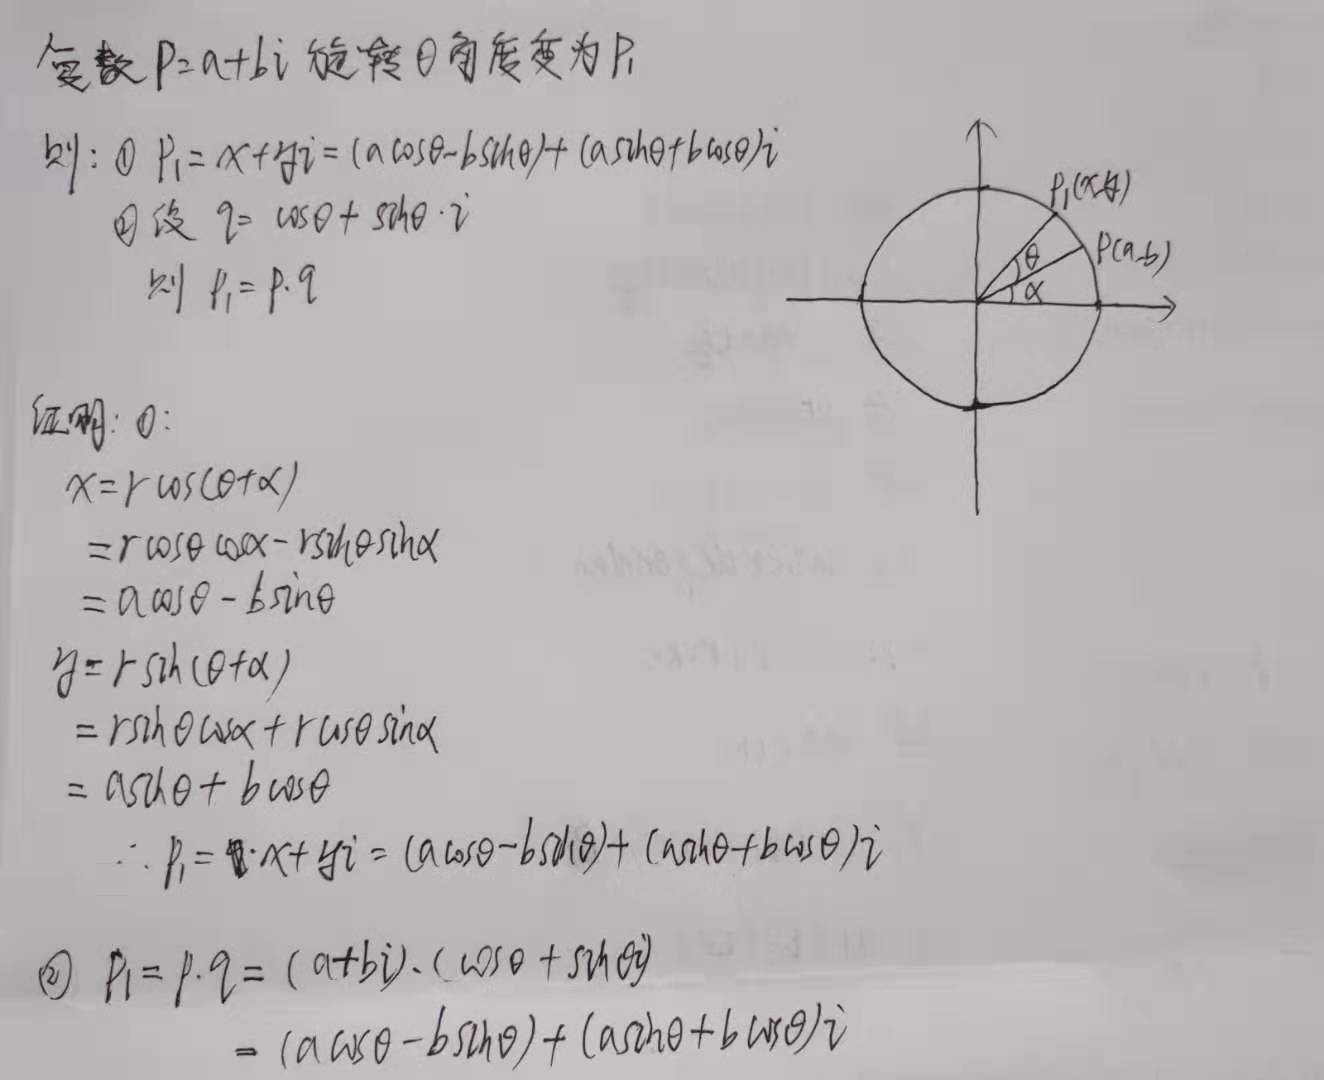 复数 P=a+bi 旋转θ角度变为P₁
则: ① P₁=x+yi=(acosθ-bsinθ)+(asinθ+bcosθ)i
② 设 q= cosθ+sinθ·i
则 P₁=P·q
P₁(x,y)
P(a,b)
θ
α
证明: ①:
x=rcos(θ+α)
=rcosθcosα-rsinθsinα
=acosθ-bsinθ
y=rsin(θ+α)
=rsinθcosα+rcosθsinα
=asinθ+bcosθ
∴P₁=x+yi=(acosθ-bsinθ)+(asinθ+bcosθ)i
② P₁=P·q=(a+bi)·(cosθ+sinθi)
=(acosθ-bsinθ)+(asinθ+bcosθ)i